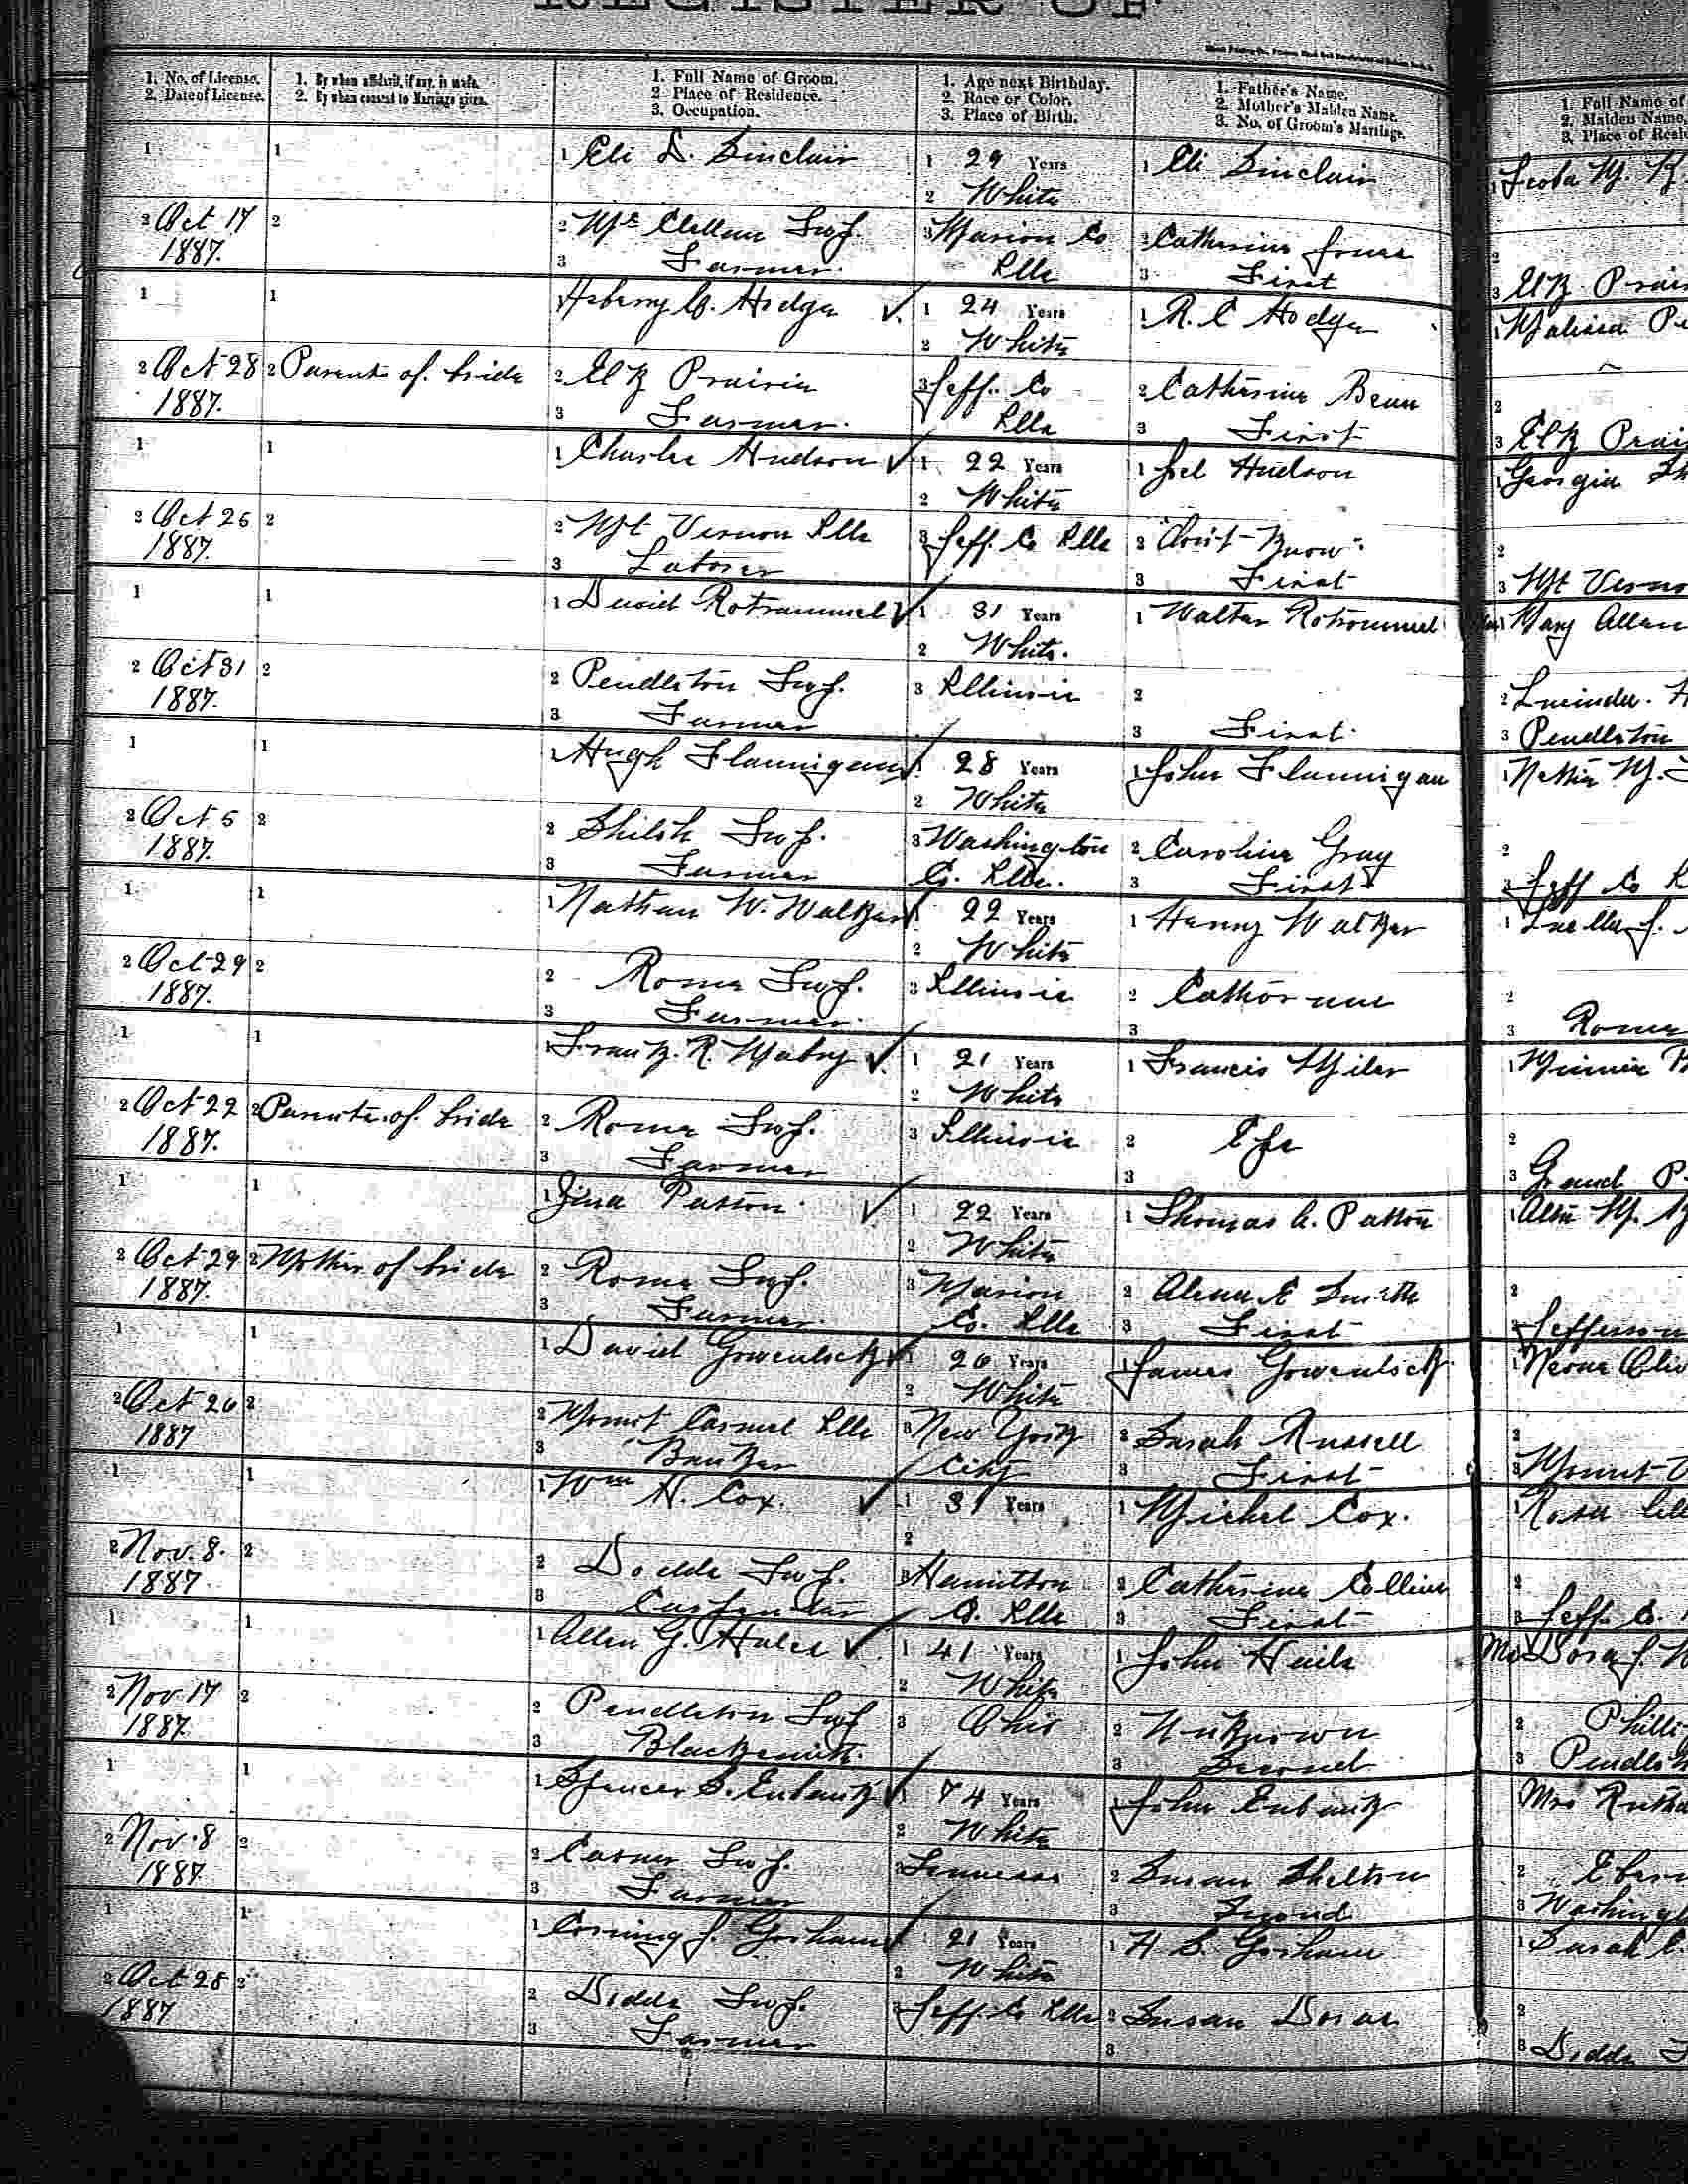 REGISTER OF
1. No. of License.
2. Date of License.
1. By whom affidavit, if any, is made.
2. By whom consent to Marriage given.
1. Full Name of Groom.
2 Place of Residence.
3. Occupation.
1. Age next Birthday.
2. Race or Color.
3. Place of Birth.
1. Father's Name.
2. Mother's Maiden Name.
3. No. of Groom's Marriage.
1. Full Name of
2. Maiden Name,
3. Place of Resi
1
1
1 Eli D. Sinclair
1 29 Years
1 Eli Sinclair
2 White
2 Oct 17
1887.
2
2 Mc Clellan Twp.
3 Marion Co
Ills
2 Catherine Jones
3 Farmer.
3 First
3 Elk Prair
1
1
1 Asberry C. Hodge
1 24 Years
1 R. C Hodge
2 White
2 Oct 28
1887.
2 Parents of bride
2 Elk Prairie
3 Jeff. Co
Ills
2 Catherine Bean
3 Farmer.
3 First
3 Elk Prai
1
1
1 Charles Hudson
1 22 Years
1 Joel Hudson
1 Georgia
2 White
2 Oct 25
1887.
2
2 Mt Vernon Ills
3 Jeff. Co Ills
2 "Don't Know"
3 Laborer
3 First
3 Mt Verno
1
1
1 David Rotrammel
1 31 Years
1 Walter Rotrammel
1 Mary Allen
2 White.
2 Oct 31
1887.
2
2 Pendleton Twp.
3 Illinois
2
2 Lucinda. H
3 Farmer
3 First.
3 Pendleton
1
1
1 Hugh Flannigan
1 28 Years
1 John Flannigan
1 Nettie M.
2 White
2 Oct 5
1887.
2
2 Shiloh Twp.
3 Washington
Co. Ills.
2 Caroline Gray
3 Farmer
3 First
3 Jeff Co
1
1
1 Nathan W. Walker
1 22 Years
1 Henry Walker
1 Luella J.
2 White
2 Oct 29
1887.
2
2 Rome Twp.
3 Illinois
2 Catherine
3 Farmer.
3
3 Rome
1
1
1 Frank. R. Mabry
1 21 Years
1 Francis
1 Minnie
2 White
2 Oct 22
1887.
2 Parents of bride
2 Rome Twp.
3 Illinois
2
3 Farmer
3
3 Grand P
1
1
1 Patton
1 22 Years
1 Thomas A. Patton
2 White
2 Oct 29
1887.
2 Mother of bride
2 Rome Twp.
3 Marion
Co. Ills
2 Smith
3 Farmer.
3 First
3 Jefferson
1
1
1 David Gowenlock
1 26 Years
1 James Gowenlock
2 White
2 Oct 26
1887
2
2 Mount Carmel Ills
3 New York
City
2 Sarah Russell
3 Banker
3 First
3 Mount V
1
1
1 Wm H. Cox.
1 31 Years
1 Michel Cox.
1 Rosa
2
2 Nov. 8.
1887
2
2 Dodds Twp.
3 Hamilton
Co. Ills
2 Catherine Collins
3 Carpenter
3 First
3 Jeff. Co.
1
1
1 Allen G. Hales
1 41 Years
1 John Haile
Mrs Dora J.
2 White
2 Nov. 17
1887.
2
2 Pendleton Twp
3 Ohio
2 Unknown
2 Philli
3 Blacksmith.
3 Second
3 Pendlet
1
1
1 Spencer S. Eubank
1 74 Years
1 John Eubank
Mrs Ruth
2 White
2 Nov. 8
1887
2
2 Casner Twp.
3 Tennessee
2 Susan Shelton
3 Farmer
3 Second
3 Washingt
1
1
1 Corning J. Gorham
1 21 Years
1 H S. Gorham
1 Sarah
2 White
2 Oct 28
1887
2
2 Dodds Twp.
3 Jeff. Co Ills
2 Susan
3 Farmer
3
3 Dodds T